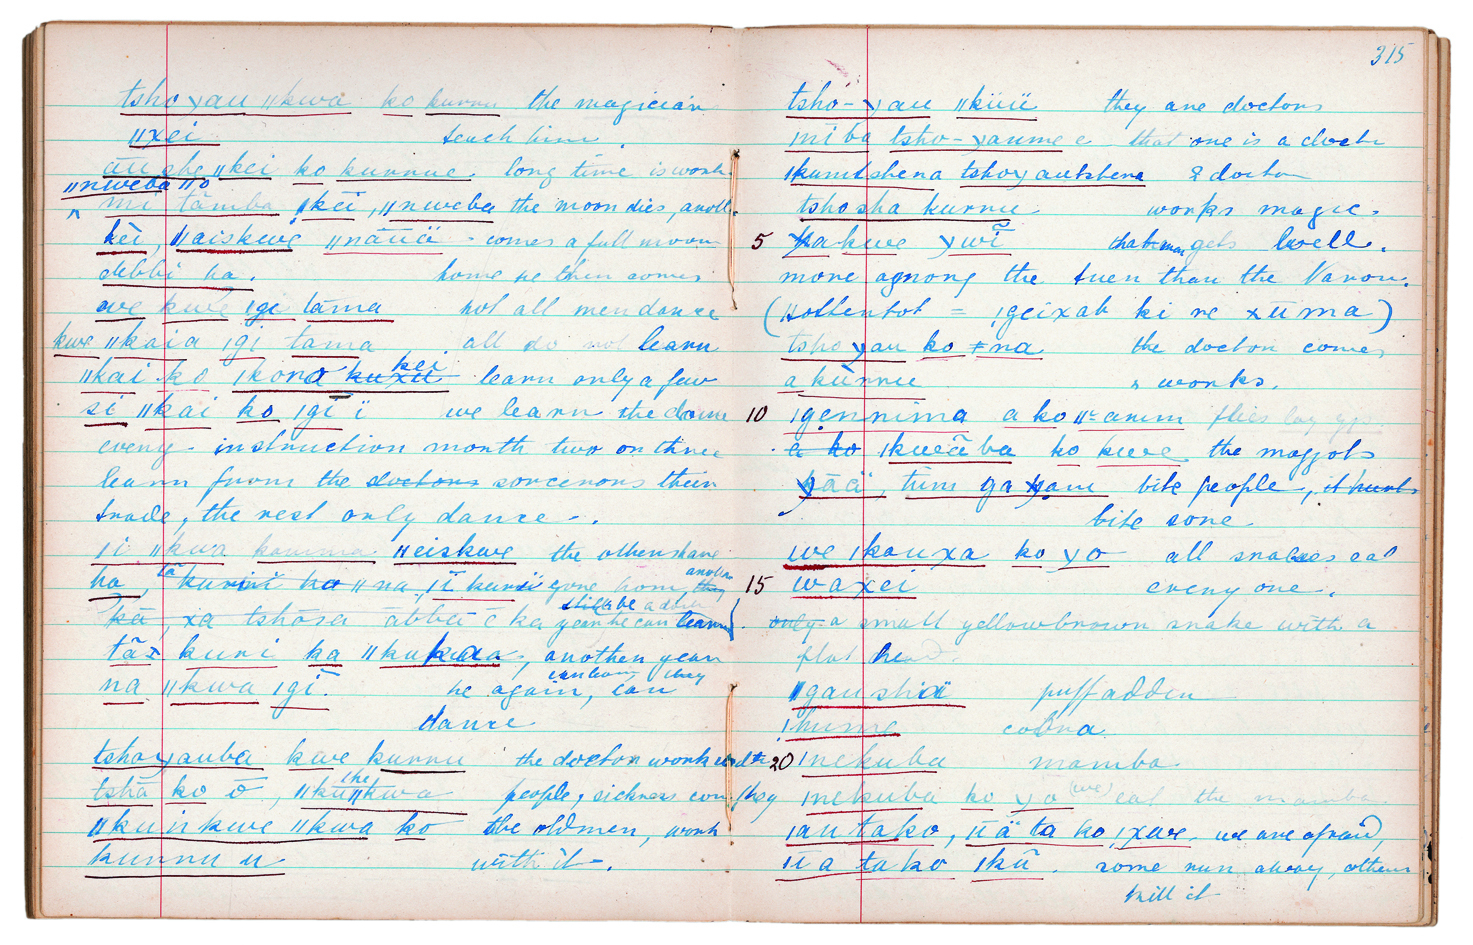 tsho χau ǁkwa ko kurru the magician
ǁxei teach him.
āu she ǁkei ko kurrue. long time is work
ǁnweba ǁo
mi tāmba ǀkēi, ǁnweba the moon dies, anoth.
kei, ǁaiskwe ǁnāüä - comes a full moon
debbi ha. home he then comes
we kwe ǀgi tāma not all men dance
kwe ǁkaia ǀgi tama all do not learn
kei
ǁkai ko ǀkona kuxü learn only a few
si ǁkai ko ǀgi ï we learn the dance
every - instruction month two or three
learn from the doctors sorcerors their
trade, the rest only dance -.
ǀi ǁkwa kamma ǁeiskwe the others have
ha, tā kurri ka ǁna ǀī kurri gone home they
another
still be a doctor
kā, xa tshāsa ābbā ē ka year he can learn
tā kuri ka ǁkukwa, another year
can learn they
na ǁkwa ǀgī. he again, can
dance
tshoχauba kwe kurru the doctor work with
tshā ko ō, ǁkuǁkwa people, sickness com they
the
ǁku ir kwe ǁkwa ko the old men, work
kurru u with it -.
315
tsho- χau ǁküü they are doctors
mība tsho-χaume e that one is a doctr
ǀkamtshena tshoχautshena 2 doctor
tshosha kurru works magic.
5 χakwe χwī that man gets well.
more among the tuen than the Naron.
(Hottentot = ǀgeixab ki re xūma)
tsho χau ko ǂna the doctor comes
a kurru " works.
10 ǀgennima a ko ǁanm flies lay
a ko ǀkweāba ko kwe the maggots
χāä, tūm ga χam bite people, it hurts
bite sore
we ǀkauxa ko χo all snakes eat
15 waxei everyone.
only a small yellowbrown snake with a
flat head.
ǁgaushaï puffadder
ǃhurue cobra.
20 ǀnekuba mamba
ǀnekuba ko χo (we) eat the mamba
ǀau tako, üä ta ko ǀxwe we are afraid,
üa tako ǀkū. some run away, others
kill it